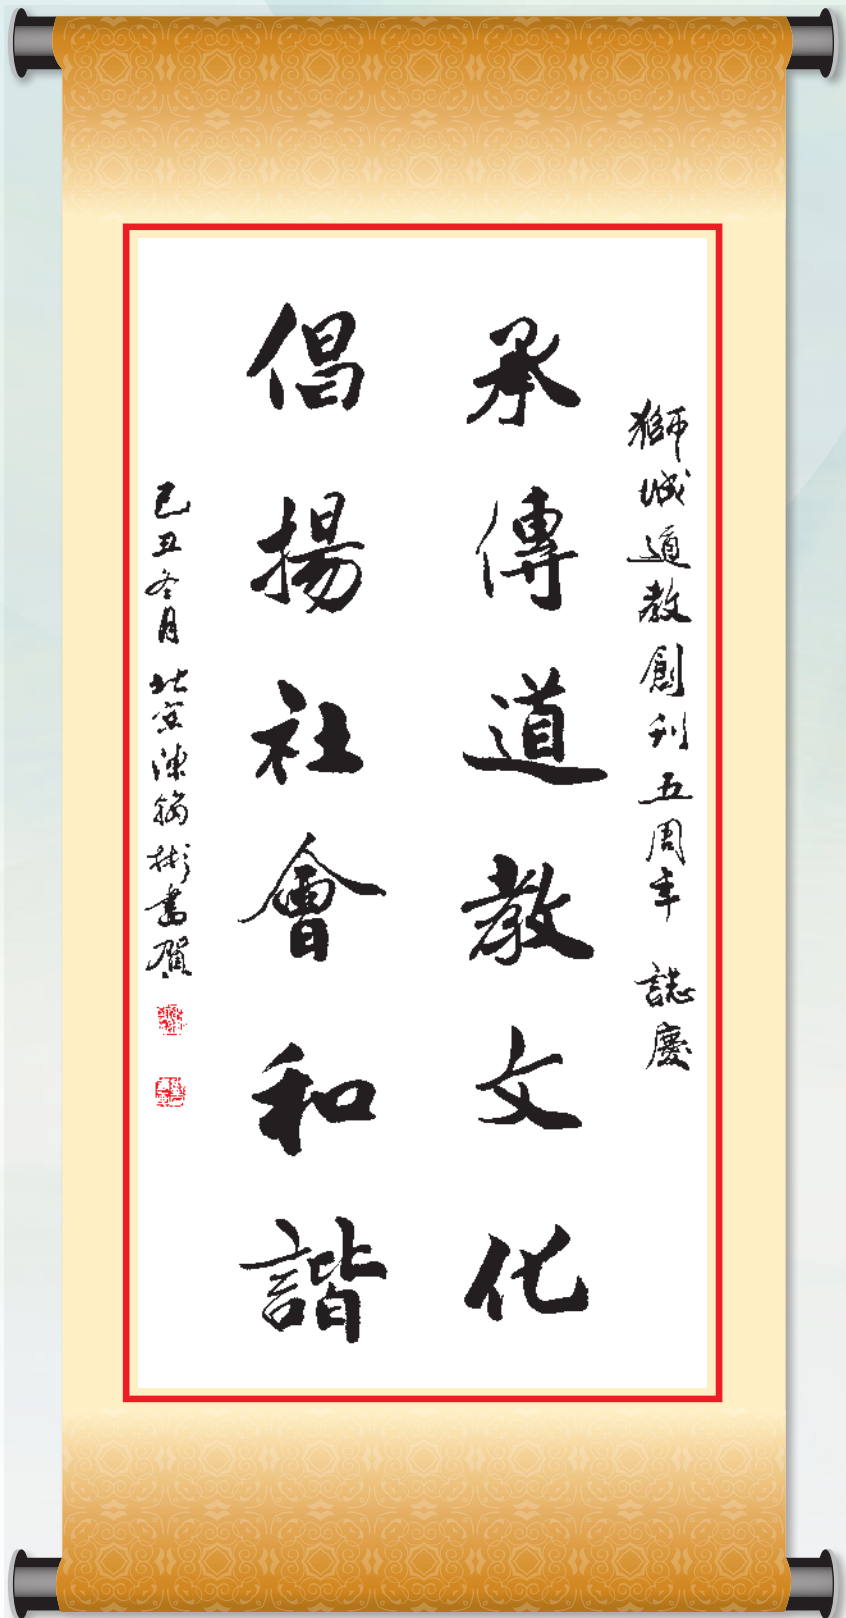 獅城道教創刊五周年 誌慶
承傳道教文化
倡揚社會和諧
己丑冬月 北京陳翰彬書賀